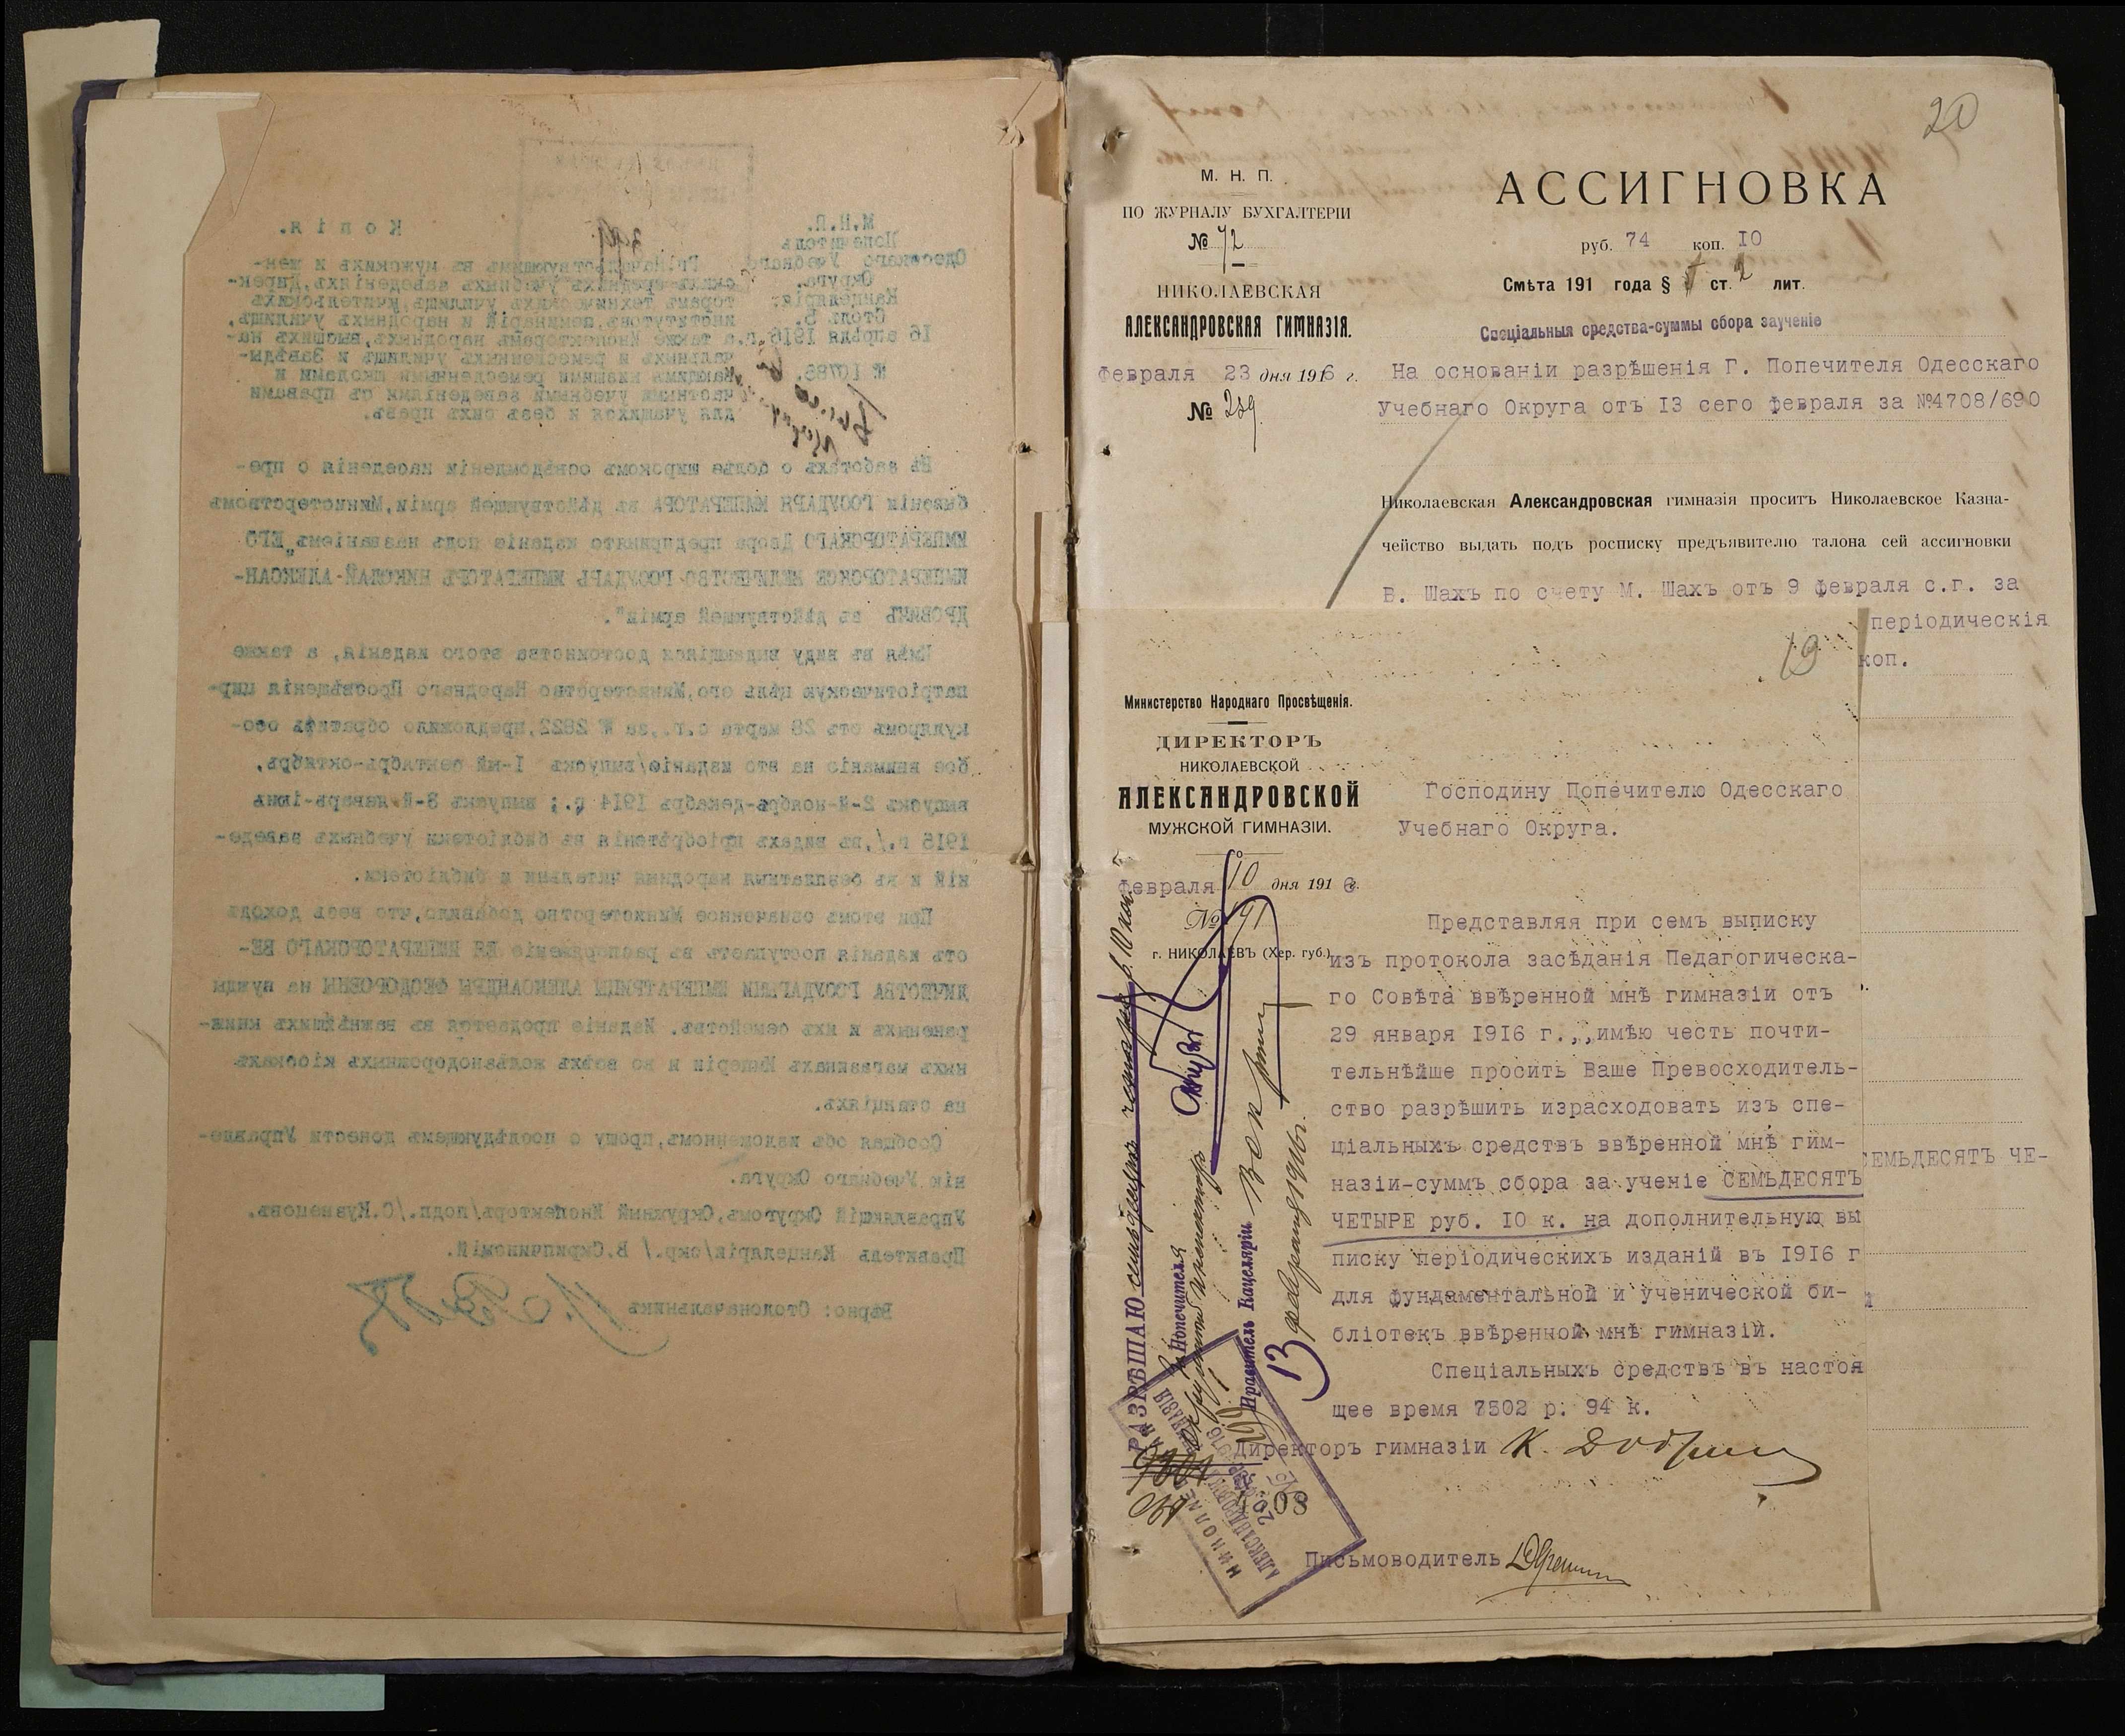 М.Н.П.
Попечитель
Одесскаго Учебнаго
Округа.
Канцелярія:
Столъ Б.
16 апрѣля 1916 г.
№ 10786.
Копія.
Гг.Начальствующимъ въ мужскихъ и жен-
скихъ среднихъ учебныхъ заведеніяхъ,Дирек-
торамъ техническихъ училищъ,учительскихъ
институтовъ,семинарій и народныхъ училищъ,
а также Инспекторамъ народныхъ,высшихъ на-
чальныхъ и ремесленныхъ училищъ и Завѣды-
вающимъ низшими ремесленными школами и
частными учебными заведеніями съ правами
для учащихся и безъ сихъ правъ.
Въ заботахъ о болѣе широкомъ освѣдомленіи населенія о пре-
бываніи ГОСУДАРЯ ИМПЕРАТОРА въ дѣйствующей арміи,Министерствомъ
ИМПЕРАТОРСКАГО Двора предпринято изданіе подъ названіемъ„ЕГО
ИМПЕРАТОРСКОЕ ВЕЛИЧЕСТВО ГОСУДАРЬ ИМПЕРАТОРЪ НИКОЛАЙ АЛЕКСАН-
ДРОВИЧЪ въ дѣйствующей арміи".
Имѣя въ виду выдающіяся достоинства этого изданія, а также
патріотическую цѣль его,Министерство Народнаго Просвѣщенія цир-
куляромъ отъ 28 марта с.г.,за № 2822,предложило обратить осо-
бое вниманіе на это изданіе/выпускъ 1-ый сентябрь-октябрь,
выпускъ 2-й-ноябрь-декабрь 1914 г.; выпускъ 3-й-январь-іюнь
1915 г./,въ видахъ пріобрѣтенія въ библіотеки учебныхъ заведе-
ній и въ безплатныя народныя читальни и библіотеки.
При этомъ означенное Министерство добавило,что весь доходъ
отъ изданія поступаетъ въ распоряженіе ЕЯ ИМПЕРАТОРСКАГО ВЕ-
ЛИЧЕСТВА ГОСУДАРЫНИ ИМПЕРАТРИЦЫ АЛЕКСАНДРЫ ФЕОДОРОВНЫ на нужды
раненыхъ и ихъ семействъ. Изданіе продается въ важнѣйшихъ книж-
ныхъ магазинахъ Имперіи и во всѣхъ желѣзнодорожныхъ кіоскахъ
на станціяхъ.
Сообщая объ изложенномъ,прошу о послѣдующемъ донести Управле-
нію Учебнаго Округа.
Управляющій Округомъ,Окружный Инспекторъ/подп./С.Кузнецовъ.
Правитель Канцеляріи/скр./ В.Скрипчинскій.
Вѣрно: Столоначальникъ
20
М. Н. П.
ПО ЖУРНАЛУ БУХГАЛТЕРІИ
№ 72
НИКОЛАЕВСКАЯ
АЛЕКСАНДРОВСКАЯ ГИМНАЗІЯ.
Февраля 23 дня 1916 г.
№ 289.
АССИГНОВКА
руб. 74 коп. 10
Смѣта 191 года § 5 ст. 2 лит.
Спеціальныя средства-суммы сбора заученіе
На основаніи разрѣшенія Г. Попечителя Одесскаго
Учебнаго Округа отъ 13 сего февраля за №4708/690
Николаевская Александровская гимназія проситъ Николаевское Казна-
чейство выдать подъ росписку предъявителю талона сей ассигновки
Б. Шахъ по счету М. Шахъ отъ 9 февраля с.г. за
періодическія
коп.
СЕМЬДЕСЯТЪ ЧЕ-
19
Министерство Народнаго Просвѣщенія.
ДИРЕКТОРЪ
НИКОЛАЕВСКОЙ
АЛЕКСАНДРОВСКОЙ
МУЖСКОЙ ГИМНАЗІИ.
Февраля 10 дня 1916 г.
№ 191
г. НИКОЛАЕВЪ (Хер. губ.)
Господину Попечителю Одесскаго
Учебнаго Округа.
Представляя при семъ выписку
изъ протокола засѣданія Педагогическа-
го Совѣта ввѣренной мнѣ гимназіи отъ
29 января 1916 г.,,имѣю честь почти-
тельнѣйше просить Ваше Превосходитель-
ство разрѣшить израсходовать изъ спе-
ціальныхъ средствъ ввѣренной мнѣ гим-
назіи-суммъ сбора за ученіе СЕМЬДЕСЯТЪ
ЧЕТЫРЕ руб. 10 к. на дополнительную вы
писку періодическихъ изданій въ 1916 г
для фундаментальной и ученической би-
бліотекъ ввѣренной мнѣ гимназіи.
Спеціальныхъ средствъ въ настоя
щее время 7502 р. 94 к.
Директоръ гимназіи
Письмоводитель
РАЗРѢШАЮ семьдесятъ четыре р. 10 коп.
Попечителя
Окружный инспекторъ
Правитель Канцеляріи
13 февраля 1916 г.
НИКОЛАЕВСКАЯ
АЛЕКСАНДРОВСКАЯ ГИМНАЗІЯ